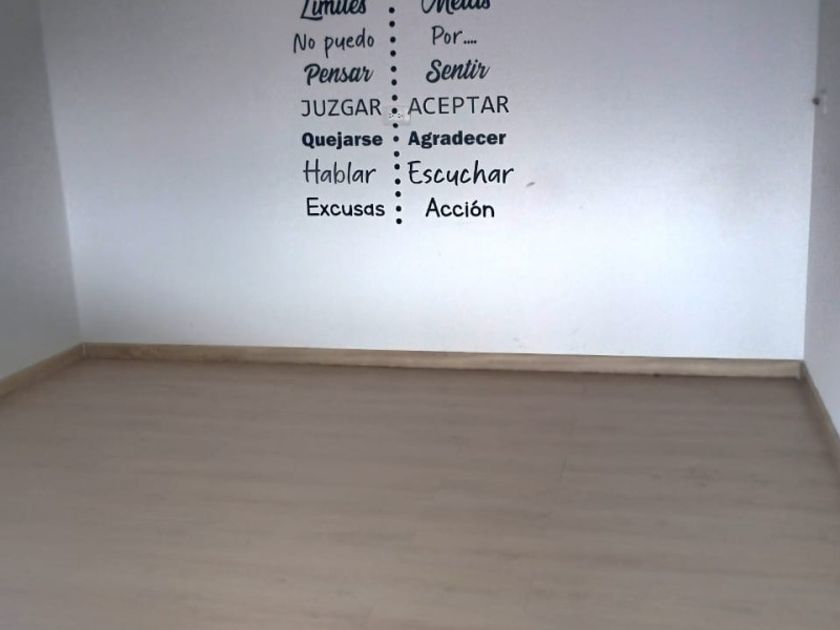 Límites Metas
No puedo Por....
Pensar Sentir
JUZGAR ACEPTAR
Quejarse Agradecer
Hablar Escuchar
Excusas Acción